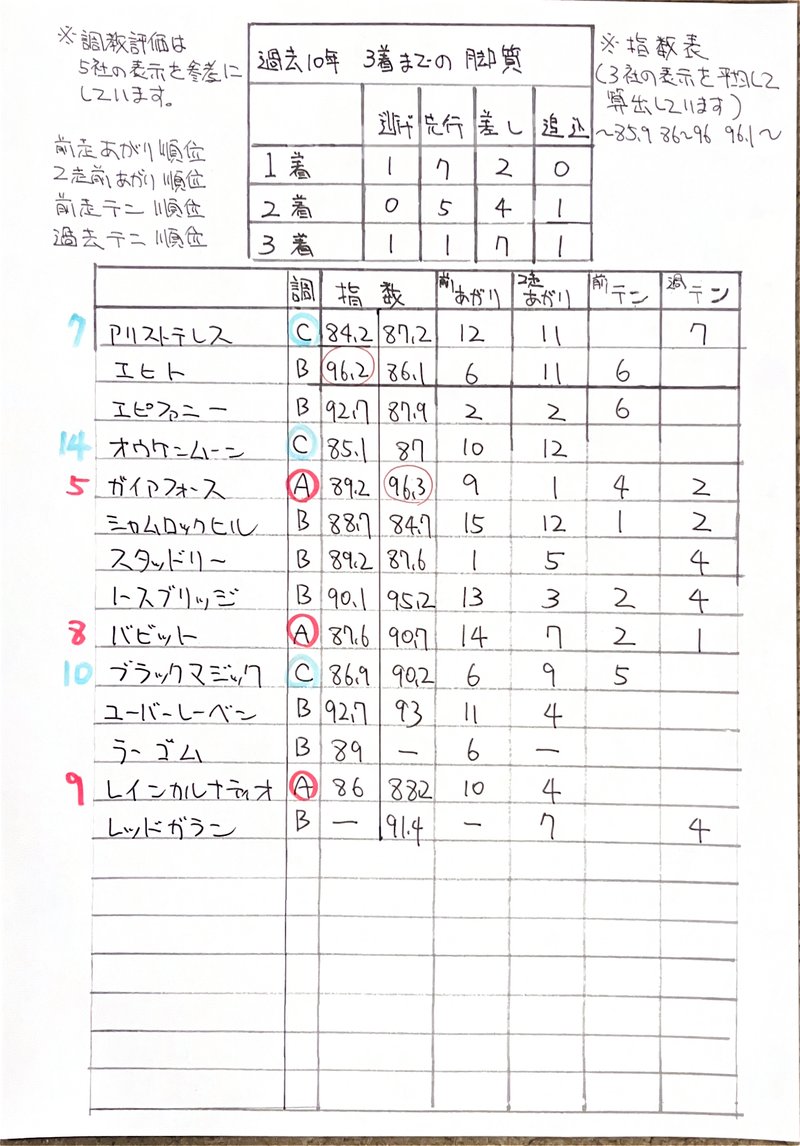 ※調教評価は
5社の表示を参考に
しています。
前走あがり順位
2走前あがり順位
前走テン順位
過去テン順位
過去10年 3着までの脚質
逃げ 先行 差し 追込
1着 1 7 2 0
2着 0 5 4 1
3着 1 1 7 1
※指数表
(3社の表示を平均して
算出しています)
～85.9 86～96 96.1～
調 指数 前あがり 2走あがり 前テン 過テン
7 アリストテレス C 84.2 87.2 12 11 7
エヒト B 96.2 86.1 6 11 6
エピファニー B 92.7 87.9 2 2 6
14 オウケンムーン C 85.1 87 10 12
5 ガイアフォース A 89.2 96.3 9 1 4 2
シャムロックヒル B 88.7 84.7 15 12 1 2
スタッドリー B 89.2 87.6 1 5 4
トースブリッジ B 90.1 95.2 13 3 2 4
8 バビット A 87.6 90.7 14 7 2 1
10 ブラックマジック C 86.9 90.2 6 9 5
ユーバーレーベン B 92.7 93 11 4
ラーゴム B 89 － 6 －
9 レインカルナティオ A 86 88.2 10 4
レッドガラン B － 91.4 － 7 4